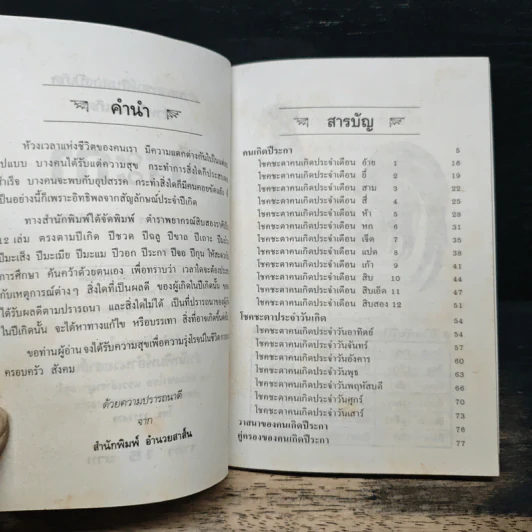 คำนำ
ห้วงเวลาแห่งชีวิตของคนเรา มีความแตกต่างกันไปเป็น
รูปแบบ บางคนได้รับแต่ความสุข กระทำสิ่งใดก็ประสบ
สำเร็จ บางคนจะพบกับอุปสรรค กระทำสิ่งใดก็มีคนคอย
เป็นอย่างนี้ก็เพราะอิทธิพลจากสัญลักษณ์ประจำปีเกิด
ทางสำนักพิมพ์ได้จัดพิมพ์ ตำราพยากรณ์สิบสองราศี
12 เล่ม ตรงตามปีเกิด ปีชวด ปีฉลู ปีขาล ปีเถาะ
ปีมะเส็ง ปีมะเมีย ปีมะแม ปีวอก ปีระกา ปีจอ ปีกุน
การศึกษา ค้นคว้าด้วยตนเอง เพื่อทราบว่า เวลาใดจะต้อง
กับเหตุการณ์ต่างๆ สิ่งใดที่เป็นผลดี ของผู้เกิดในปีเกิดนั้น
ได้รับผลดีตามปรารถนา และสิ่งใดไม่ได้ เป็นที่ปรารถนาของผู้
ในปีเกิดนั้น จะได้หาทางแก้ไข หรือบรรเทา สิ่งที่อาจเกิดขึ้น
ขอท่านผู้อ่านจงได้รับความสุขเพื่อความรุ่งโรจน์ในชีวิต
ครอบครัว สังคม
ด้วยความปรารถนาดี
จาก
สำนักพิมพ์ อำนวยสาส์น
สารบัญ
คนเกิดปีระกา 5
โชคชะตาคนเกิดประจำเดือน อ้าย 1 16
โชคชะตาคนเกิดประจำเดือน ยี่ 2 19
โชคชะตาคนเกิดประจำเดือน สาม 3 22
โชคชะตาคนเกิดประจำเดือน สี่ 4 25
โชคชะตาคนเกิดประจำเดือน ห้า 5 28
โชคชะตาคนเกิดประจำเดือน หก 6 31
โชคชะตาคนเกิดประจำเดือน เจ็ด 7 34
โชคชะตาคนเกิดประจำเดือน แปด 8
โชคชะตาคนเกิดประจำเดือน เก้า 9
โชคชะตาคนเกิดประจำเดือน สิบ 10
โชคชะตาคนเกิดประจำเดือน สิบเอ็ด 11
โชคชะตาคนเกิดประจำเดือน สิบสอง 12 51
โชคชะตาประจำวันเกิด 54
โชคชะตาคนเกิดประจำวันอาทิตย์ 54
โชคชะตาคนเกิดประจำวันจันทร์ 57
โชคชะตาคนเกิดประจำวันอังคาร 60
โชคชะตาคนเกิดประจำวันพุธ
โชคชะตาคนเกิดประจำวันพฤหัสบดี
โชคชะตาคนเกิดประจำวันศุกร์ 70
โชคชะตาคนเกิดประจำวันเสาร์ 73
วาสนาของคนเกิดปีระกา 76
คู่ครองของคนเกิดปีระกา 77